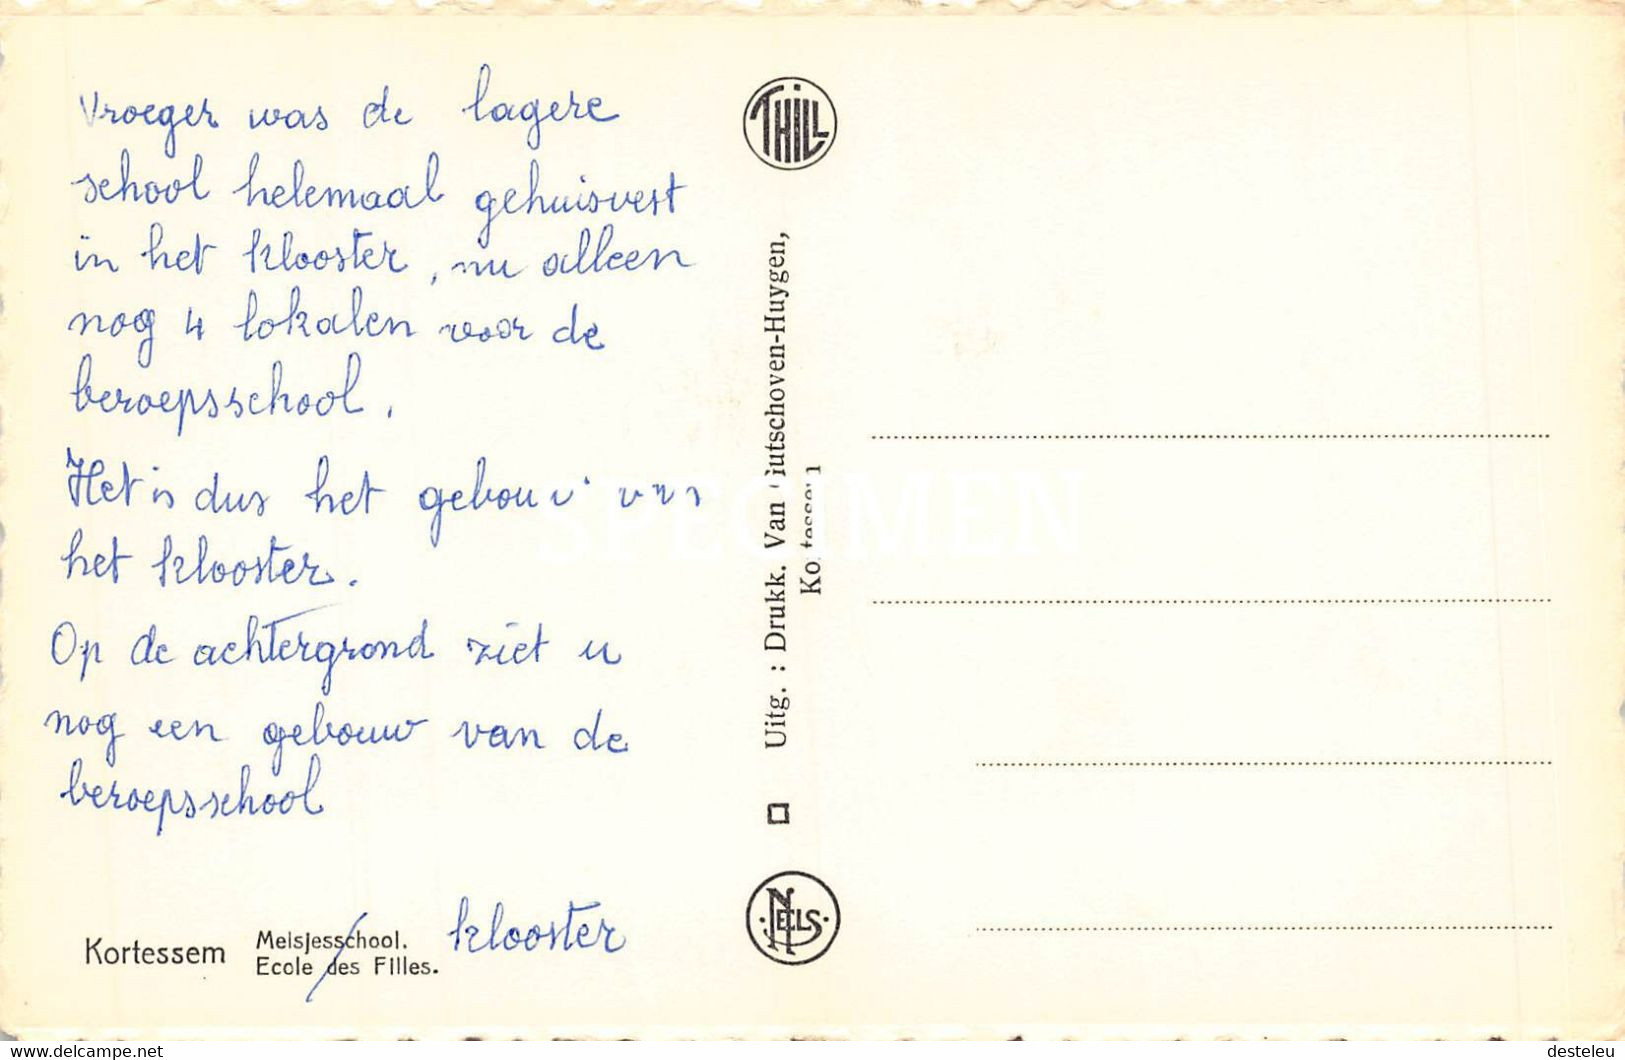 Vroeger was de lagere
school helemaal gehuisvest
in het klooster, nu alleen
nog 4 lokalen voor de
beroepsschool.
Het is dus het gebouw van
het klooster.
Op de achtergrond ziet u
nog een gebouw van de
beroepsschool
Kortessem
Meisjesschool.
Ecole des Filles.
klooster
THILL
Uitg. : Drukk. Van
Kortessem
NELS
SPECIMEN
https://www.delcampe.net
desteleu